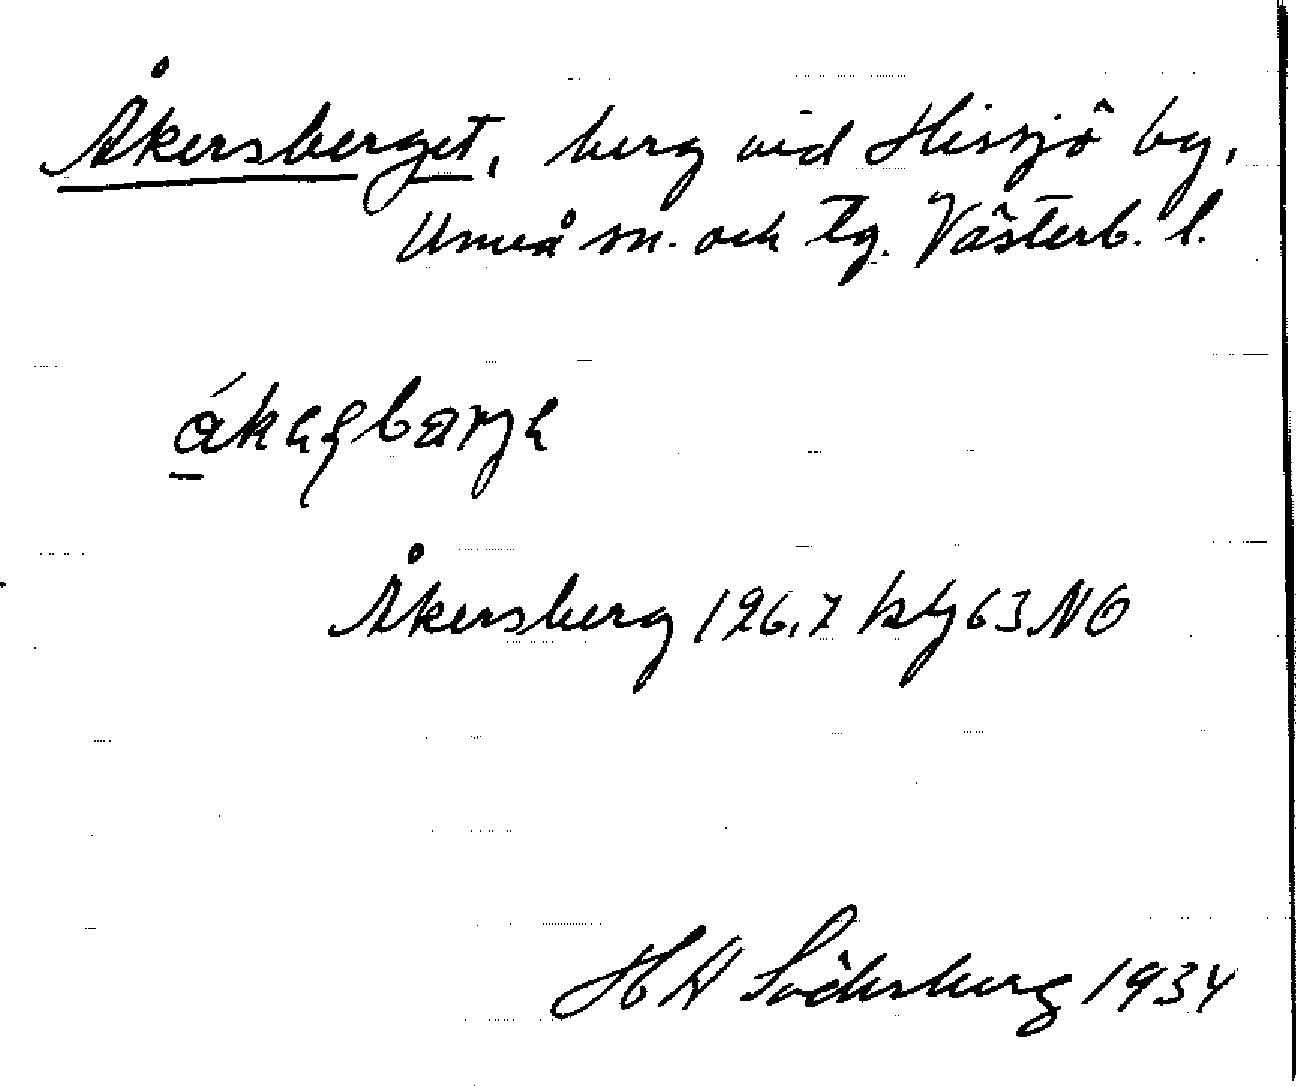 Åkersberget, berg vid Hissjö by,
Umeå sn. och tg. Västerb. l.
Åkersberg 126,7 kbl 63 NO
H W Söderberg 1934